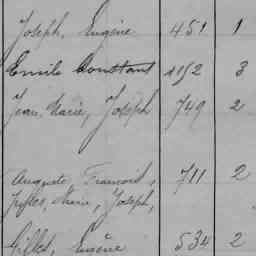 Joseph, Eugène 451 1
Emile Constant 1152 3
Jean, Marie, Joseph 749 2
Auguste, Francois, 711 2
Jules, Marie, Joseph,
Gilles, Eugène 534 2